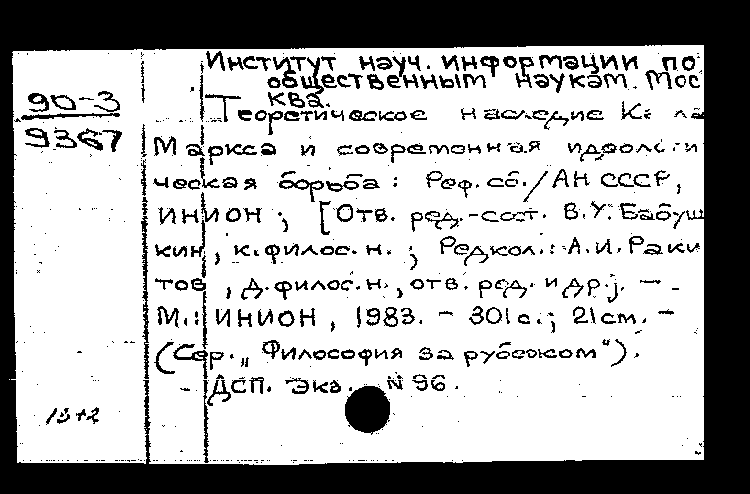 Институт науч. информации по
общественным наукам. Мос
ква.
90-3
9367
Теоретическое наследие К
Маркса и современная идеологи
ческая борьба: Реф. сб. / АН СССР,
ИНИОН; [Отв. ред.-сост. В.У. Бабуш
кин, к. филос. н.; Редкол.: А.И. Раки
тов, д. филос. н., отв. ред. и др.]. —
М.: ИНИОН, 1983. - 301 с.; 21 см. -
(Сер. „Философия за рубежом").
- ДСП. Экз. N 96.